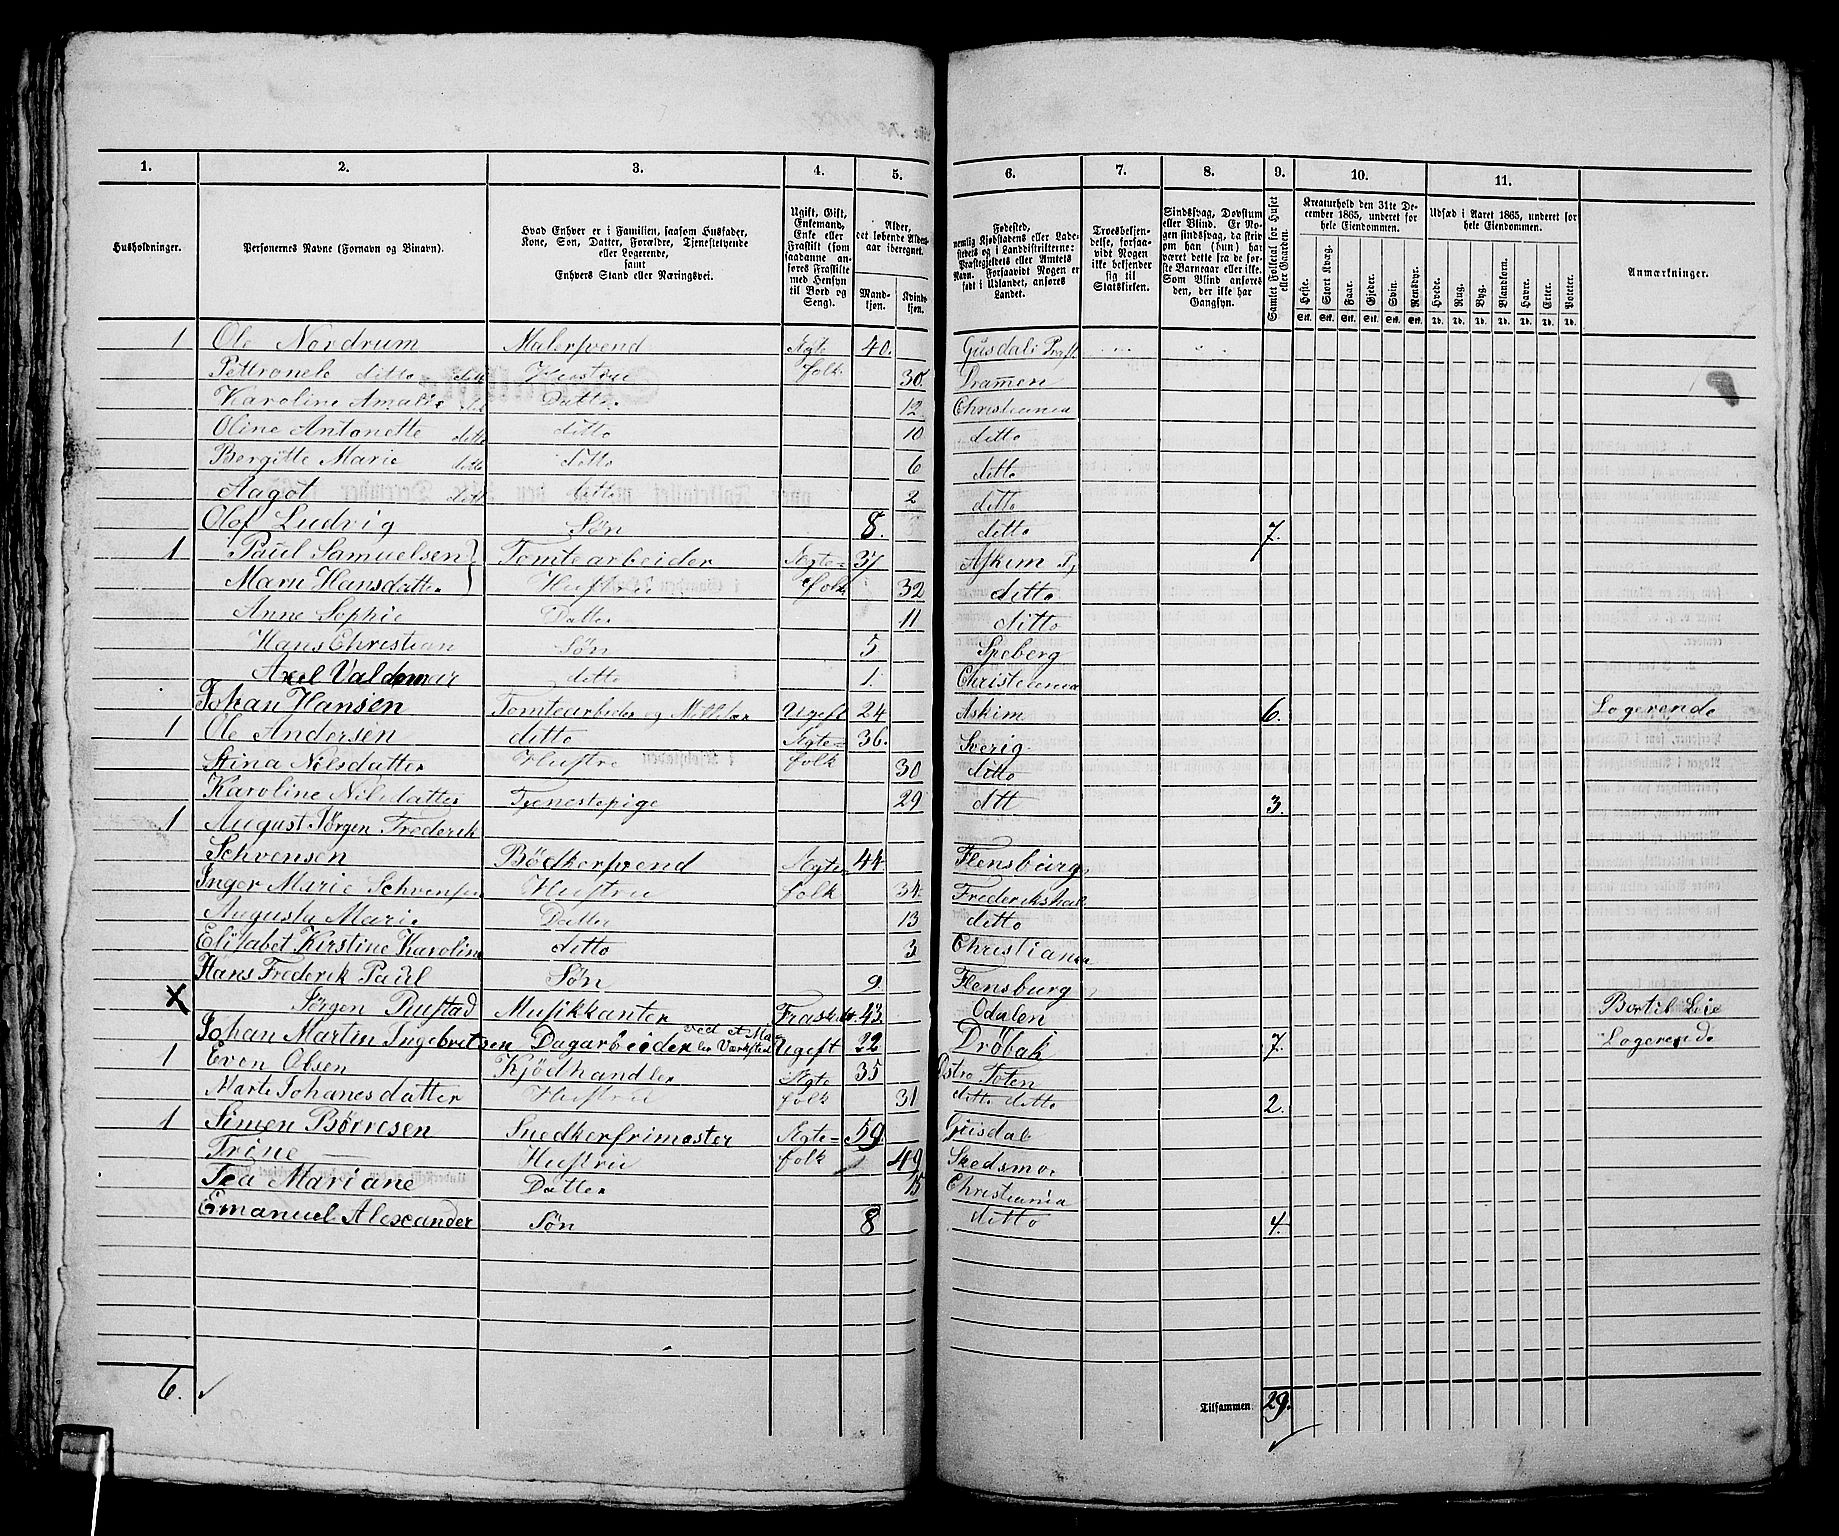 1. 2. 3. 4. 5. 6. 7. 8. 9. 10. 11.
Husholdninger.
Personernes Navne (Fornavn og Binavn).
Hvad Enhver er i Familien, saasom Husfader, Kone, Søn, Datter, Forældre, Tjenestetyende eller Logerende, samt Enhvers Stand eller Næringsvei.
Ugift, Gift, Enkemand, Enke eller Fraskilt (som saadanne anføres Fraskilte med Hensyn til Bord og Seng).
Alder, det løbende Aldersaar iberegnet.
Mandkjøn. Kvindekjøn.
Fødested, nemlig Kjøbstadens eller Ladestedets og i Landdistrikterne: Præstegjeldets eller Amtets Navn. Forsaavidt Nogen er født i Udlandet, anføres Landet.
Troesbekjendelse, forsaavidt Nogen ikke bekjender sig til Statskirken.
Sindssvag, Døvstum eller Blind. Er Nogen sindssvag, da skrives om han (hun) har været dette fra de første Barneaar eller ikke. Som Blind anføres den, der ikke har Gangsyn.
Samlet Folketal for Huset eller Gaarden.
Kreaturhold den 31te December 1865, underet for hele Eiendommen.
Heste. Stort Kvæg. Faar. Gjeder. Svin. Rensdyr.
Stk. Stk. Stk. Stk. Stk. Stk.
Udsæd i Aaret 1865, underet for hele Eiendommen.
Hvede. Rug. Byg. Blandkorn. Havre. Erter. Poteter.
Td. Td. Td. Td. Td. Td. Td.
Anmærkninger.
1 Ole Nordrum Malersvend Ægte 40. Gusdal Præst
Pettronele ditto Hustru folk 30. Dramen
Karoline Amalie Datter 12. Christiania
Oline Antonette ditto ditto 10 ditto
Bergitte Marie ditto ditto 6 ditto
Aagot ditto ditto 2 ditto
Olof Ludvig Søn 8. ditto 7.
1 Paul Samuelsen Tomtearbeider Ægte= 37 Askim Pj
Marn Hansdatter Hustru folk 32 ditto
Anne Sophie Datter 11 ditto
Hans Christian Søn 5 Speberg
Axel Valdemar ditto 1. Christiania
Johan Hansen Tomtearbeider og Militær Ugeft 24 Askim 6. Logerende
1 Ole Andersen ditto Ægte= 36. Sverig
Stina Nilsdatter Hustru folk 30 ditto
Karoline Nilsdatter Tjenestepige 29 ditt 3.
1 August Jørgen Frederik
Schvensen Bödkersvend Ægte 44 Flensburg
Inger Marie Schvensen Hustru folk 34. Frederikshal
Augusta Marie Datter 13 ditto
Elisabet Kirstine Karoline ditto 3 Christiania
Hans Frederik Paul Søn 9 Flensburg
X Jørgen Rustad Musikkanter Fraskilt 43. Odalen
Johan Martin Ingebretsen Dagarbeider ved et Værksted Ugeft 22 Dröbak 7. Logerende
1 Even Olsen Kjödhandler Ægte 35 Østre Toten
Marte Johanesdatter Hustru folk 31 ditto ditto 2.
1 Simen Börresen Snedkerfrimester Ægte= 59 Gusdal
Trine — Hustru folk 49 Skedsmo
Tea Mariane Datter 15 Christiania
Emanuel Alexander Søn 8 ditto 4.
6. ✓
Tilsammen 29. ✓